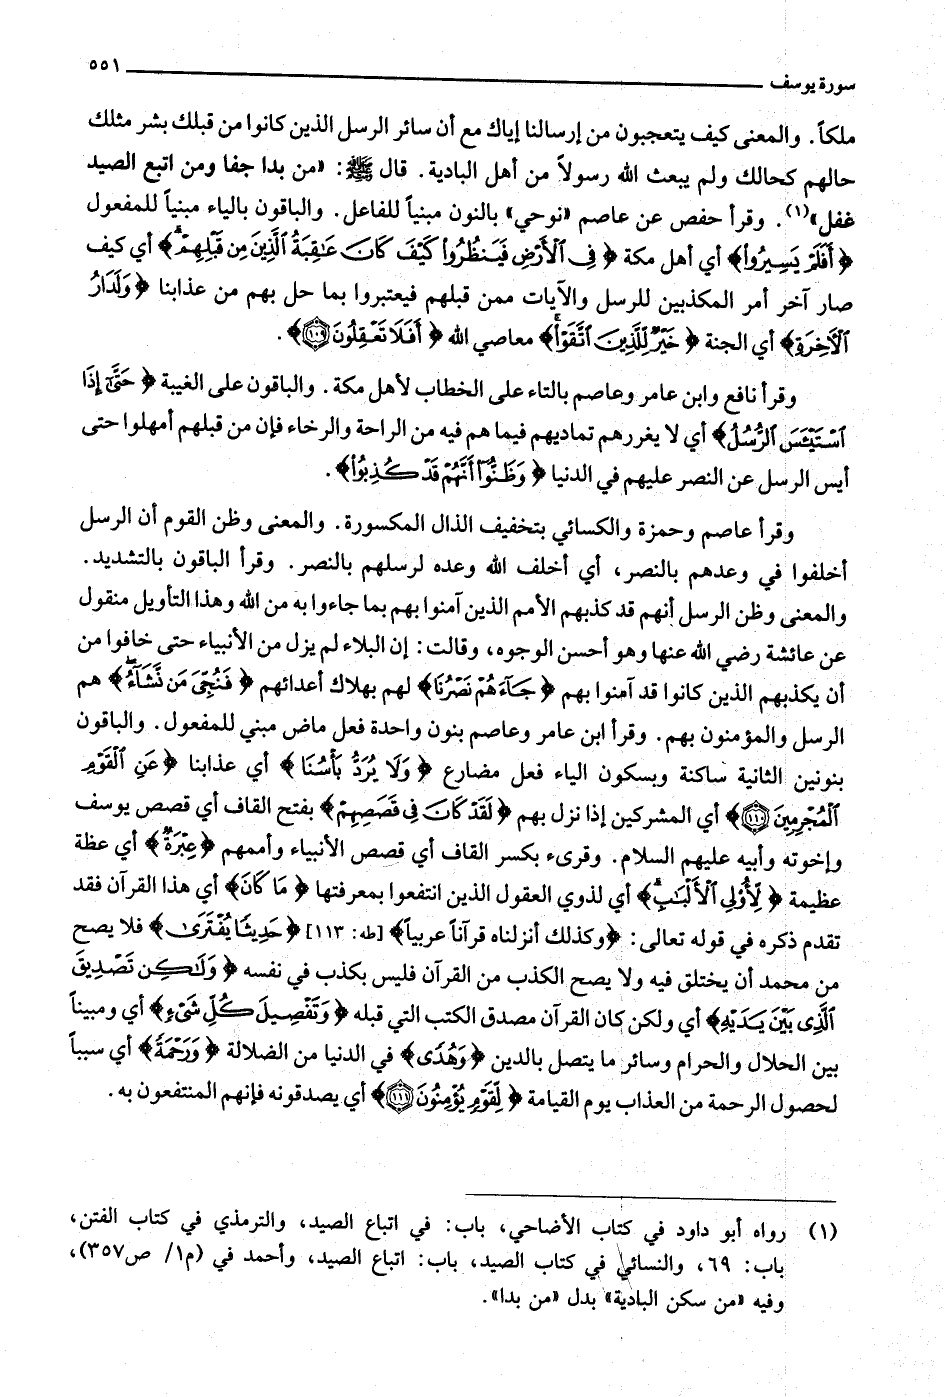 سورة يوسف ٥٥١
ملكاً. والمعنى كيف يتعجبون من إرسالنا إياك مع أن سائر الرسل الذين كانوا من قبلك بشر مثلك
حالهم كحالك ولم يبعث الله رسولاً من أهل البادية. قال ﷺ: «من بدا جفا ومن اتبع الصيد
غفل»(١). وقرأ حفص عن عاصم «نوحي» بالنون مبنياً للفاعل. والباقون بالياء مبنياً للمفعول
﴿أَفَلَمْ يَسِيرُوا۟﴾ أي أهل مكة ﴿فِى ٱلْأَرْضِ فَيَنظُرُوا۟ كَيْفَ كَانَ عَـٰقِبَةُ ٱلَّذِينَ مِن قَبْلِهِمْ ۗ﴾ أي كيف
صار آخر أمر المكذبين للرسل والآيات ممن قبلهم فيعتبروا بما حل بهم من عذابنا ﴿وَلَدَارُ
ٱلْـَٔاخِرَةِ﴾ أي الجنة ﴿خَيْرٌ لِّلَّذِينَ ٱتَّقَوْا۟ ۚ﴾ معاصي الله ﴿أَفَلَا تَعْقِلُونَ ١٠٩﴾.
وقرأ نافع وابن عامر وعاصم بالتاء على الخطاب لأهل مكة. والباقون على الغيبة ﴿حَتَّىٰٓ إِذَا
ٱسْتَيْـَٔسَ ٱلرُّسُلُ﴾ أي لا يغررهم تماديهم فيما هم فيه من الراحة والرخاء فإن من قبلهم أمهلوا حتى
أيس الرسل عن النصر عليهم في الدنيا ﴿وَظَنُّوٓا۟ أَنَّهُمْ قَدْ كُذِبُوا۟﴾.
وقرأ عاصم وحمزة والكسائي بتخفيف الذال المكسورة. والمعنى وظن القوم أن الرسل
أخلفوا في وعدهم بالنصر، أي أخلف الله وعده لرسلهم بالنصر. وقرأ الباقون بالتشديد.
والمعنى وظن الرسل أنهم قد كذبهم الأمم الذين آمنوا بهم بما جاءوا به من الله وهذا التأويل منقول
عن عائشة رضي الله عنها وهو أحسن الوجوه، وقالت: إن البلاء لم يزل من الأنبياء حتى خافوا من
أن يكذبهم الذين كانوا قد آمنوا بهم ﴿جَآءَهُمْ نَصْرُنَا﴾ لهم بهلاك أعدائهم ﴿فَنُجِّىَ مَن نَّشَآءُ ۖ﴾ هم
الرسل والمؤمنون بهم. وقرأ ابن عامر وعاصم بنون واحدة فعل ماض مبني للمفعول. والباقون
بنونين الثانية ساكنة وبسكون الياء فعل مضارع ﴿وَلَا يُرَدُّ بَأْسُنَا﴾ أي عذابنا ﴿عَنِ ٱلْقَوْمِ
ٱلْمُجْرِمِينَ ١١٠﴾ أي المشركين إذا نزل بهم ﴿لَقَدْ كَانَ فِى قَصَصِهِمْ﴾ بفتح القاف أي قصص يوسف
وإخوته وأبيه عليهم السلام. وقرىء بكسر القاف أي قصص الأنبياء وأممهم ﴿عِبْرَةٌ﴾ أي عظة
عظيمة ﴿لِّأُو۟لِى ٱلْأَلْبَـٰبِ ۗ﴾ أي لذوي العقول الذين انتفعوا بمعرفتها ﴿مَا كَانَ﴾ أي هذا القرآن فقد
تقدم ذكره في قوله تعالى: ﴿وكذلك أنزلناه قرآناً عربياً﴾ [طه: ١١٣] ﴿حَدِيثًا يُفْتَرَىٰ﴾ فلا يصح
من محمد أن يختلق فيه ولا يصح الكذب من القرآن فليس بكذب في نفسه ﴿وَلَـٰكِن تَصْدِيقَ
ٱلَّذِى بَيْنَ يَدَيْهِ﴾ أي ولكن كان القرآن مصدق الكتب التي قبله ﴿وَتَفْصِيلَ كُلِّ شَىْءٍ﴾ أي ومبيناً
بين الحلال والحرام وسائر ما يتصل بالدين ﴿وَهُدًى﴾ في الدنيا من الضلالة ﴿وَرَحْمَةً﴾ أي سبباً
لحصول الرحمة من العذاب يوم القيامة ﴿لِّقَوْمٍ يُؤْمِنُونَ ١١١﴾ أي يصدقونه فإنهم المنتفعون به.
(١) رواه أبو داود في كتاب الأضاحي، باب: في اتباع الصيد، والترمذي في كتاب الفتن،
باب: ٦٩، والنسائي في كتاب الصيد، باب: اتباع الصيد، وأحمد في (م١/ ص٣٥٧)،
وفيه «من سكن البادية» بدل «من بدا».